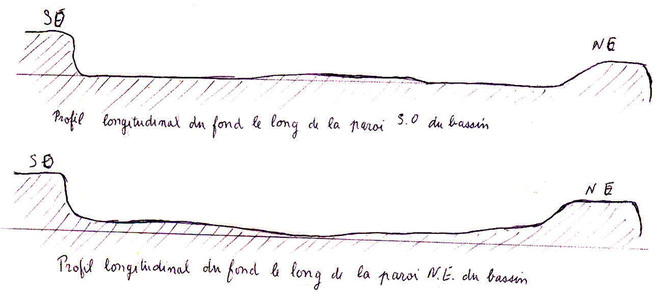 NE
Profil longitudinal du fond le long de la paroi S.O du bassin
NE
Profil longitudinal du fond le long de la paroi N.E. du bassin